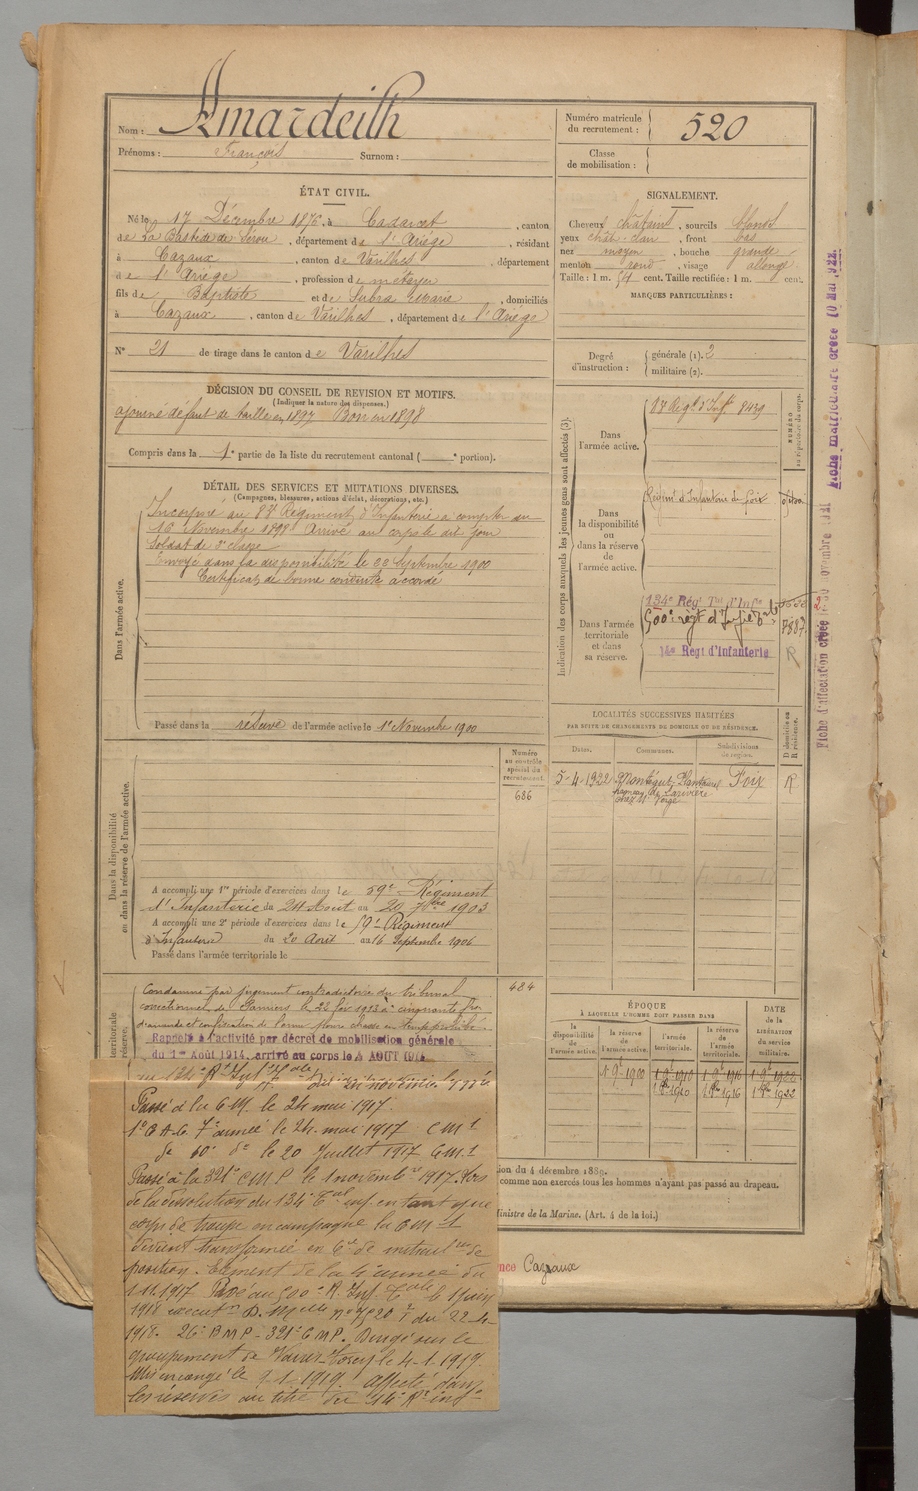 Nom : Amardeilh
Prénoms : François Surnom :
Numéro matricule du recrutement : 520
Classe de mobilisation :
ÉTAT CIVIL.
Né le 17 Décembre 1876, à Cadarcet, canton
de La Bastide de Sérou, département de l'Ariège, résidant
à Cazaux, canton de Varilhes, département
de l'Ariège, profession de métayer
fils de Baptiste et de Subra Marie, domiciliés
à Cazaux, canton de Varilhes, département de l'Ariège
N° 21 de tirage dans le canton de Varilhes
SIGNALEMENT.
Cheveux châtains, sourcils blonds
yeux chât. clair, front bas
nez moyen, bouche grande
menton rond, visage allongé
Taille : 1 m. 54 cent. Taille rectifiée : 1 m. cent.
MARQUES PARTICULIÈRES :
Degré d'instruction : générale (1). 2
militaire (2).
DÉCISION DU CONSEIL DE REVISION ET MOTIFS.
(Indiquer la nature des dispenses.)
ajourné défaut de taille en 1897 Bon en 1898
Compris dans la 1e partie de la liste du recrutement cantonal ( e portion).
DÉTAIL DES SERVICES ET MUTATIONS DIVERSES.
(Campagnes, blessures, actions d'éclat, décorations, etc.)
Dans l'armée active.
Incorporé au 83e Régiment d'Infanterie à compter du
16 Novembre 1898 Arrivé au corps le dit jour
Soldat de 2e classe
Envoyé dans la disponibilité le 22 Septembre 1900
Certificat de bonne conduite accordé
Passé dans la réserve de l'armée active le 1er Novembre 1900
Indication des corps auxquels les jeunes gens sont affectés (3).
NUMÉRO
au répertoire du corps.
Dans l'armée active.
8439
Dans la disponibilité ou dans la réserve de l'armée active.
Régim t d'Infanterie de Foix
Dans l'armée territoriale et dans sa réserve.
134e Régt Ter d'Infie
500e régt d'Infie 7887
14e Régt d'Infanterie R
LOCALITÉS SUCCESSIVES HABITÉES
PAR SUITE DE CHANGEMENTS DE DOMICILE OU DE RÉSIDENCE.
Dates. Communes. Subdivisions de région. D domicile ou R résidence.
5-4-1922 Montégut Plantaurel Foix R
hameau de Larivière
chez Mr
Numéro au contrôle spécial du recrutement.
686
Dans la disponibilité ou dans la réserve de l'armée active.
A accompli une 1re période d'exercices dans le 59e Régiment
d'Infanterie du 24 Août au 20 7bre 1903
A accompli une 2e période d'exercices dans le 59e Régiment
d'Infanterie du 20 Août au 16 Septembre 1906
Passé dans l'armée territoriale le
484
Condamné par jugement contradictoire du tribunal
correctionnel de Pamiers le 22 fév 1913 à cinquante frs
d'amende et confiscation de l'arme pour chasse en temps prohibé.
Rappelé à l'activité par décret de mobilisation générale
du 1er Août 1914, arrivé au corps le 4 AOUT 1914
Passé à la C.M. le 24 mai 1917.
7e année le 24 mai 1917
le 20 Juillet 1917
Passé à la 321e C M P le 1 novembre 1917. Lors
de la dissolution du 134e Tal inf. en tant que
corps de troupe en campagne la C M 1
devient transformée en Cie de mitrailses de
position. Elément de la 4e année du
1.11.1917 Passé au 500e R. Inf. Tale le 1 juin
1918 D. Melle du 22-4-
1918. 26e B M P - 321e C M P. Dirigé sur le
groupement de le 4-1-1919.
Mis en congé le 1919. Affecté dans
les réserves au titre du 14e Rt inf
ÉPOQUE
À LAQUELLE L'HOMME DOIT PASSER DANS
la disponibilité de l'armée active. la réserve de l'armée active. l'armée territoriale. la réserve de l'armée territoriale. DATE de la LIBÉRATION du service militaire.
1 9e 1900 1 9e 1910 1 9e 1916 1 9e 1922
1 8re 1910 1 8re 1916 1 8re 1922
tion du 4 décembre 1889.
comme non exercés tous les hommes n'ayant pas passé au drapeau.
Ministre de la Marine. (Art. 4 de la loi.)
Cazaux
Fiche matriculaire créée 10 Mai 1922.
Fiche d'affectation créée novembre